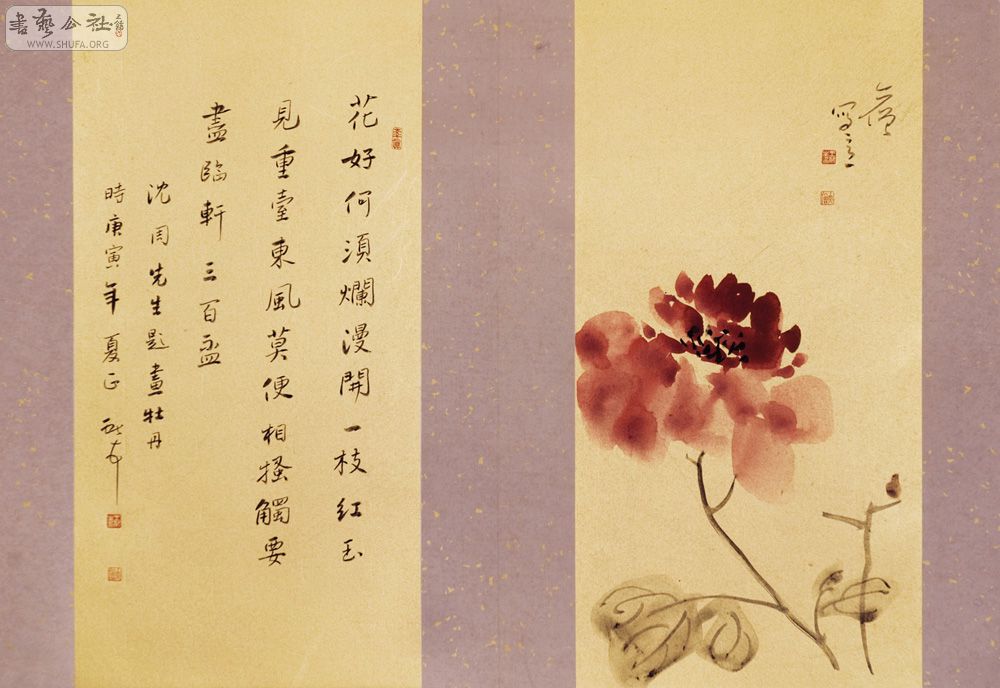 花好何須爛漫開一枝紅玉
見重臺東風莫便相搔觸要
盡臨軒三百盃
沈周先生題畫牡丹
時庚寅年夏正
寫意
書藝公社
WWW.SHUFA.ORG